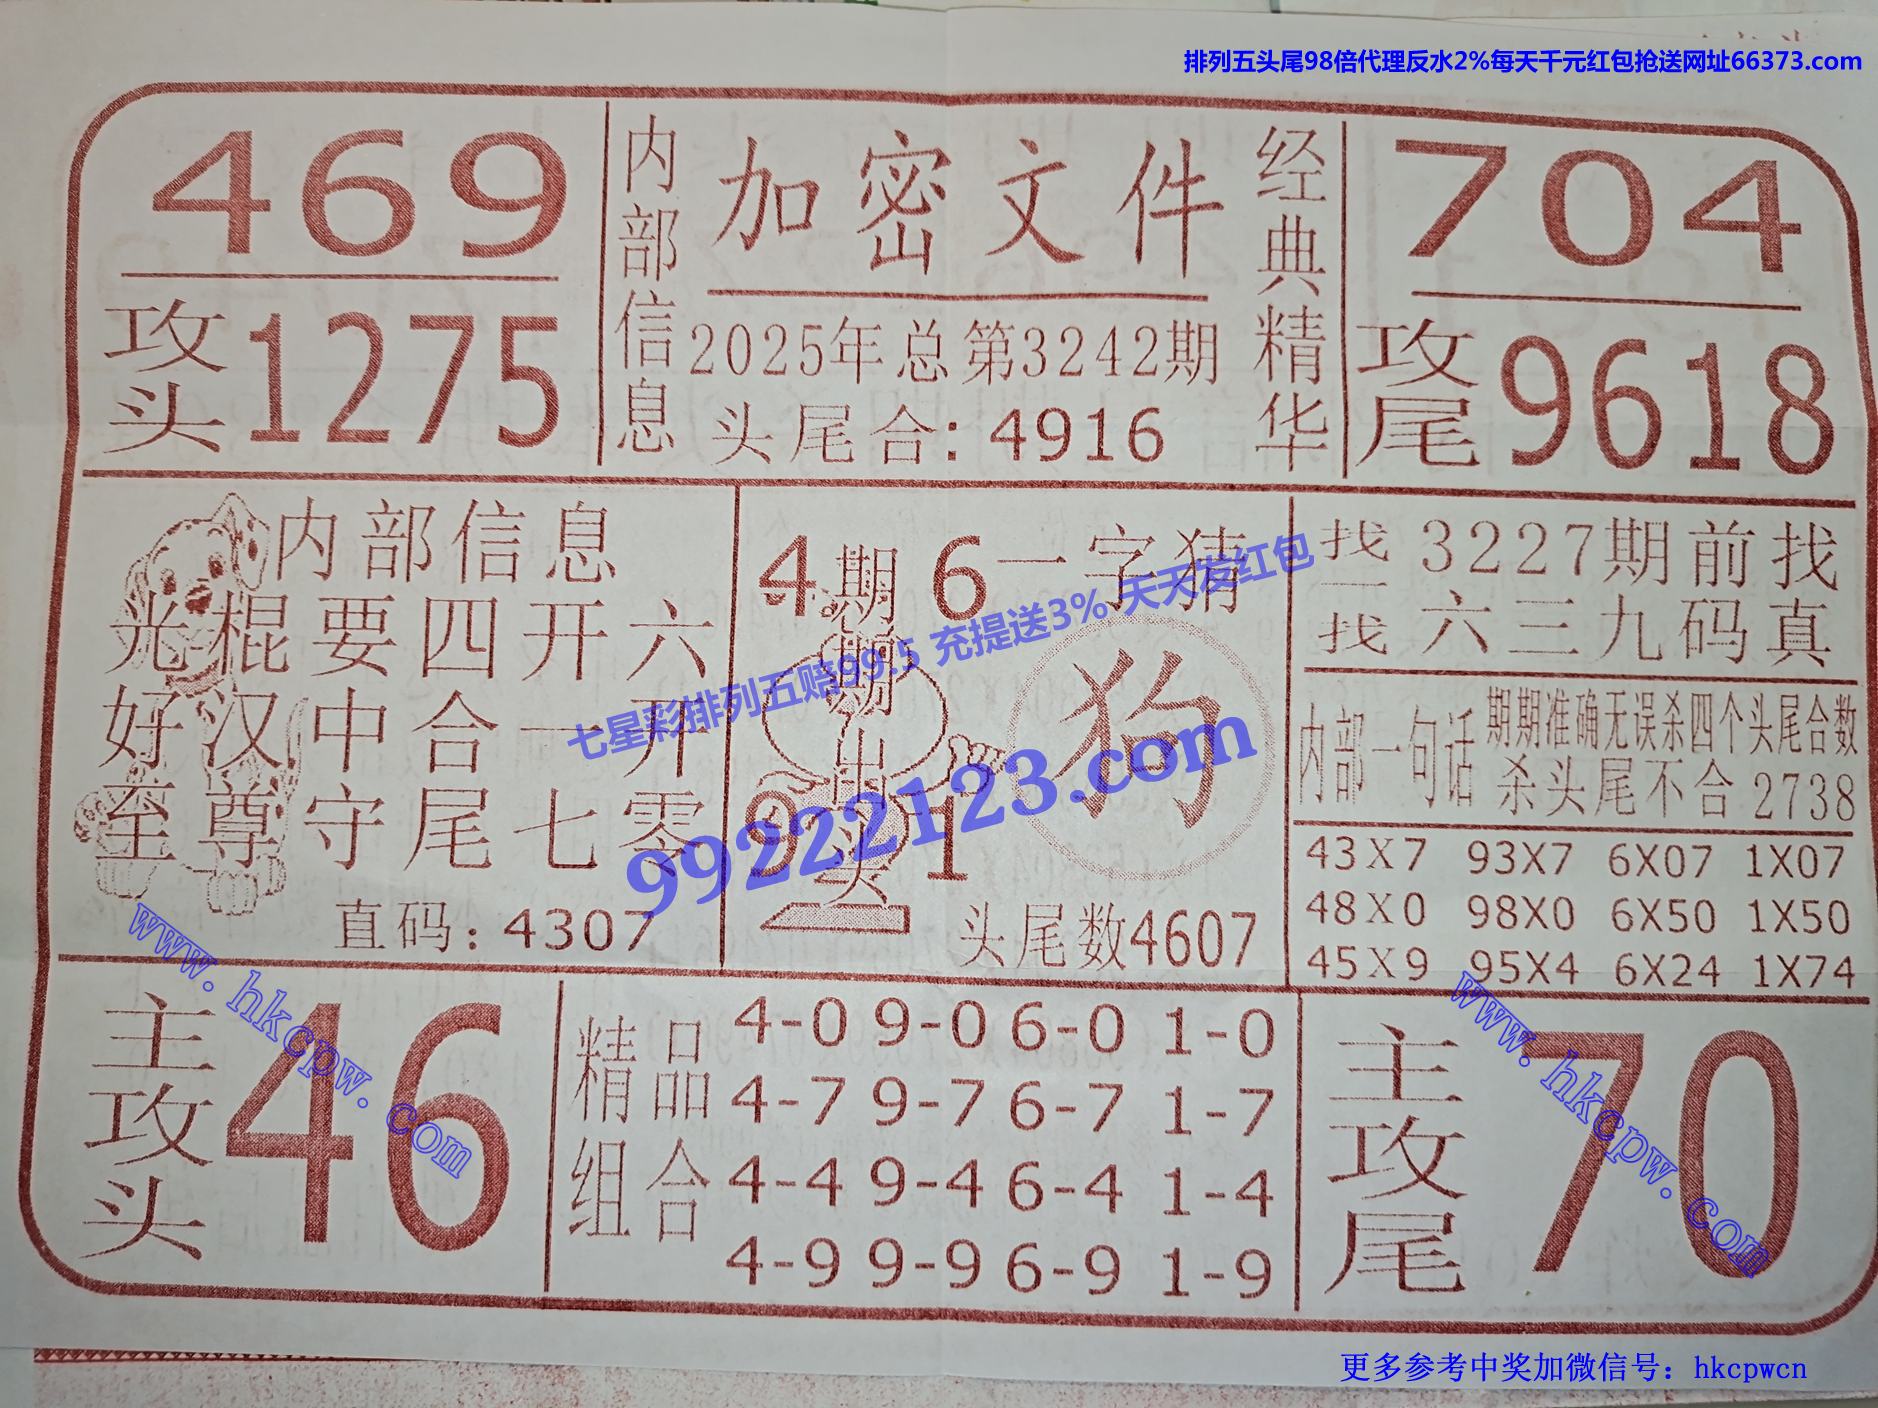 排列五头尾98倍代理反水2%每天千元红包抢送网址66373.com
469
攻头1275
内部信息
加密文件
2025年总第3242期
头尾合:4916
经典精华
704
攻尾9618
内部信息
光棍要四开六
好汉中合一开
至尊守尾七零
直码:4307
4 期期出头 6
9 1
一字猜
狗
头尾数4607
找一找
3227期前找
六三九码真
内部一句话
期期准确无误杀四个头尾合数
杀头尾不合2738
43X7 93X7 6X07 1X07
48X0 98X0 6X50 1X50
45X9 95X4 6X24 1X74
七星彩排列五赔99.5 充提送3% 天天发红包
99222123.com
主攻头46
精品组合
4-0 9-0 6-0 1-0
4-7 9-7 6-7 1-7
4-4 9-4 6-4 1-4
4-9 9-9 6-9 1-9
主攻尾70
www.hkcpw.com
www.hkcpw.com
更多参考中奖加微信号：hkcpwcn